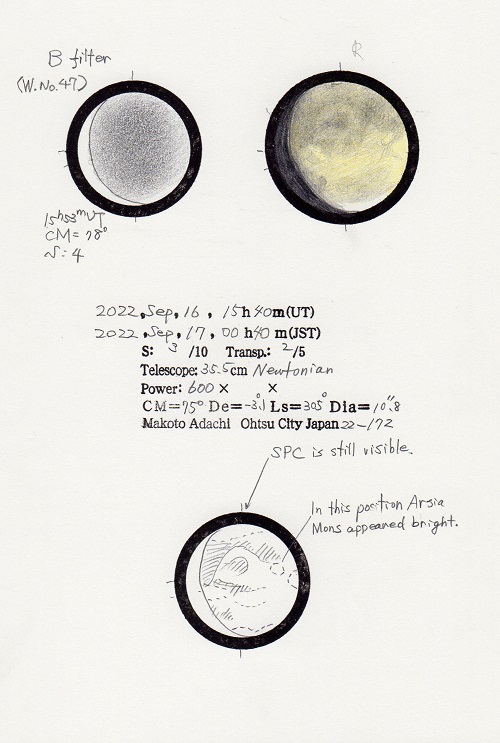 B filter
(W.No.47)
15h53mUT
CM=78°
S:4
2022, Sep, 16, 15h40m(UT)
2022, Sep, 17, 00h40m(JST)
S: 3 /10 Transp.: 2/5
Telescope: 35.5cm Newtonian
Power: 600× ×
CM=75° De=-3.1° Ls=305° Dia=10".8
Makoto Adachi Ohtsu City Japan 22-172
SPC is still visible.
In this position Arsia
Mons appeared bright.